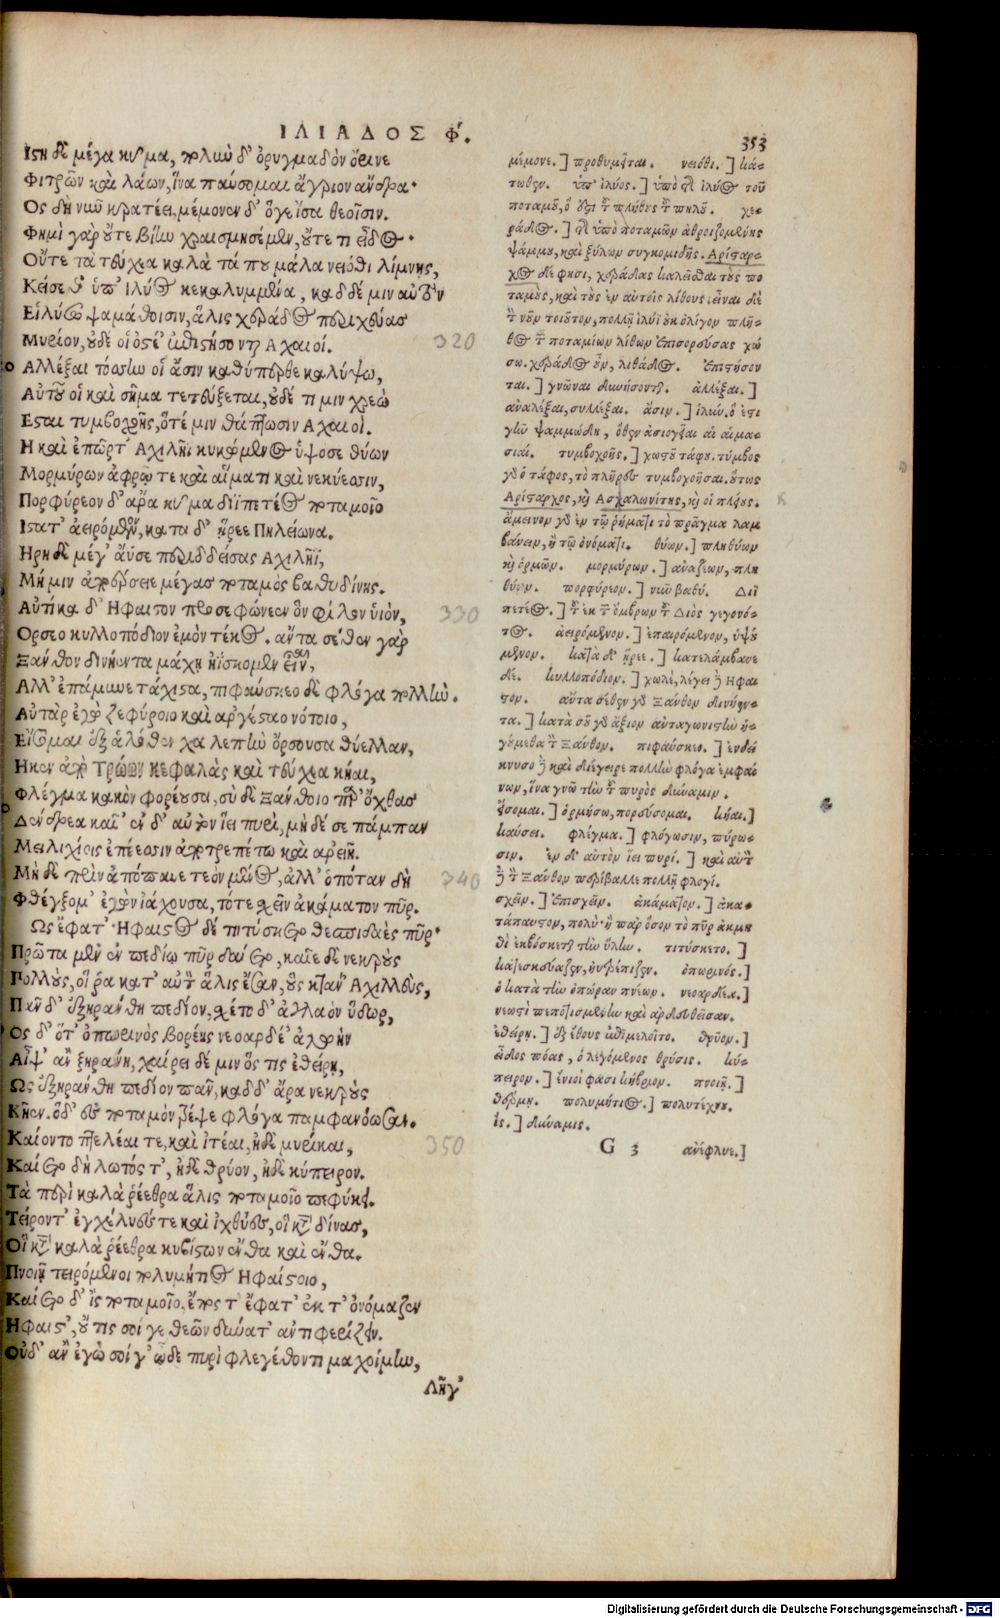 ΙΛΙΑΔΟΣ Φ.
353
Ιστη δὲ μέγα κῦμα, πολιὼ δ' ὀρυγμαδὸν ὄρινε
Φιτρῶν καὶ λάων, ἵνα παύσομαι ἄγριον ἄνδρα·
Ος δὴ νιῦ κρατέει, μέμονεν δ' ὅγε ἶσα θεοῖσιν.
Φημὶ γὰρ οὔτε βίω χραισμησέμεν, οὔτε τι εἶδος·
Οὔτε τὰ τεύχεα καλὰ τά που μάλα νειόθι λίμνης,
Κείσεθ' ὑπ' ἰλύος κεκαλυμμένα, καδδέ μιν αὐτὸν
Εἰλύσω ψαμάθοισιν, ἅλις χεράδος περιχεύας
Μυρίον, οὐδέ οἱ ὀστέ' ἐπιστήσονται Αχαιοί.
320
Αλλέξαι τόσσω οἱ ἄσιν καθύπερθε καλύψω,
Αὐτοῦ οἱ καὶ σῆμα τετεύξεται, οὐδέ τι μιν χρεὼ
Εσται τυμβοχοῆς, ὅτέ μιν θάπτωσιν Αχαιοί.
Η καὶ ἐπῶρτ' Αχιλῆϊ κυκώμενος ὑψόσε θύων
Μορμύρων ἀφρῷ τε καὶ αἵματι καὶ νεκύεσσιν,
Πορφύρεον δ' ἄρα κῦμα διϊπετέος ποταμοῖο
Ιστατ' ἀειρόμενον, κατα δ' ᾕρεε Πηλείωνα.
Ηρη δὲ μέγ' ἄϋσε περιδδείσασ Αχιλῆϊ,
Μή μιν ἀποέρσειε μέγασ ποταμὸς βαθυδίνης.
Αὐτίκα δ' Ηφαιστον προσεφώνεεν ὃν φίλον υἱὸν,
330
Ορσεο κυλλοπόδιον ἐμὸν τέκος. ἄντα σέθεν γὰρ
Ξανθον δινήεντα μάχη ἠΐσκομεν εἶναι,
Αλλ' ἐπάμυνε τάχιστα, πιφαύσκεο δὲ φλόγα πολλιώ.
Αὐτὰρ ἐγὼ ζεφύροιο καὶ ἀργέσταο νότοιο,
Εἴσομαι ἐξ ἁλόθεν χαλεπιὼ ὄρσουσα θύελλαν,
Ηκεν ἀπὸ Τρώων κεφαλὰς καὶ τεύχεα κήαι,
Φλέγμα κακὸν φορέουσα, σὺ δὲ Ξανθοιο παρ' ὄχθασ
Δένδρεα καῖ' ἐν δ' αὐτὸν ἵει πυρὶ, μὴ δέ σε πάμπαν
Μειλιχίοις ἐπέεσσιν ἀποτρεπέτω καὶ ἀρειῇ.
Μὴ δὲ πρὶν ἀπόπαυε τεὸν μένος, ἀλλ' ὁπόταν δὴ
340
Φθέγξομ' ἐγὼν ἰάχουσα, τότε σχεῖν ἀκάματον πῦρ.
Ως ἔφατ' Ηφαιστος δὲ τιτύσκετο θεσπιδαὲς πῦρ·
Πρῶτα μὲν ἐν πεδίῳ πῦρ δαίετο, καῖε δὲ νεκροὺς
Πολλοὺς, οἵ ῥα κατ' αὐτὸ ἅλις ἔσαν, οὓς κτάν' Αχιλλεὺς,
Πᾶν δ' ἐξηράνθη πεδίον, σχέτο δ' ἀλλαὸν ὕδωρ,
Ος δ' ὅτ' ὀπωρινὸς βορέης νεοαρδέ' ἀλωὴν
Αἶψ' ἂν ξηράνῃ, χαίρει δέ μιν ὅς τις ἐθείρη,
Ως ἐξηράνθη πεδίον πᾶν, καδδ' ἄρα νεκροὺς
Κῆεν. ὁ δ' ἐς ποταμὸν τρέψε φλόγα παμφανόωσαν.
Καίοντο πτελέαι τε, καὶ ἰτέαι, ἠδὲ μυρῖκαι,
350
Καίετο δὴ λωτός τ', ἠδὲ θρύον, ἠδὲ κύπειρον.
Τὰ περὶ καλὰ ῥέεθρα ἅλις ποταμοῖο πεφύκει.
Τείροντ' ἐγχέλυές τε καὶ ἰχθύες, οἳ κατὰ δίνασ,
Οἳ κατὰ καλὰ ῥέεθρα κυβίστων ἔνθα καὶ ἔνθα.
Πνοιῇ τειρόμενοι πολυμήτιος Ηφαίστοιο,
Καίετο δ' ἲς ποταμοῖο, ἔπος τ' ἔφατ' ἐκ τ' ὀνόμαζεν
Ηφαιστ', οὔ τις σοί γε θεῶν δύνατ' ἀντιφερίζειν.
Οὐδ' ἂν ἐγὼ σοί γ' ὧδε πυρὶ φλεγέθοντι μαχοίμιω,
Λῆγ'
μέμονε.] προθυμεῖται. νειόθι.] κά-
τωθεν. ὑπ' ἰλύος.] ὑπὸ τῆς ἰλύος τοῦ
ποταμοῦ, ὅ ἐστι τοῦ πλήθους τοῦ πηλοῦ. χε-
ράδος.] τῆς ὑπὸ ποταμῶν ἀθροιζομένης
ψάμμου, καὶ ξύλων συγκομιδῆς. Αρίσταρ-
χος δέ φησι, χεράδας καλεῖσθαι τοὺς πο
ταμοὺς, καὶ τοὺς ἐν αὐτοῖς λίθους
θος τῶν ποταμίων λίθων ἐπισορεύσας χώ
σω. χεράδος οὖν, λιθάδος. ἐπιστήσον
ται.] γνῶναι δυνήσονται. ἀλλέξαι.]
ἀναλέξαι, συλλέξαι. ἄσιν.] ἰλιώ. ὅ ἐστι
γῆν ψαμμώδη, ὅθεν ἀσιογεῖαι αἱ αἱμα-
σιαί. τυμβοχοῆς.] χωστοῦ τάφου. τύμβος
γὰρ ὁ τάφος, τὸ πλῆρες τυμβοχοῆσαι. οὕτως
Αρίσταρχος, καὶ Ασκαλωνίτης, καὶ οἱ πλείους.
ἄμεινον γὰρ ἐν τῷ ῥήματι τὸ πρᾶγμα λαμ
βάνειν, ἢ τῷ ὀνόματι. θύων.] πληθύων
καὶ ὁρμῶν. μορμύρων.] ἀναζέων, πλη
θύων. πορφύρεον.] νιῦ βαθύ. Διϊ
πετέος.] τοῦ ἐκ τῶν ὄμβρων τοῦ Διὸς γεγονό-
τος. ἀειρόμενον.] ἐπαιρόμενον, ὑψού
μενον. κατὰ δ' ᾕρεε.] κατελάμβανε
δέ. κυλλοπόδιον.] χωλὲ, λέγει
ἄντα σέθεν γὰρ Ξάνθον δινήεν-
τα.] κατὰ σοῦ γὰρ ἄξιον ἀνταγωνιστιὼ ἡ-
γούμεθα τὸν Ξάνθον. πιφαύσκεο.] ἐνδεί
κνυσο δὲ καὶ διέγειρε πολλιὼ φλόγα ἐμφαί
νων, ἵνα γνῶ τιὼ τοῦ πυρὸς δύναμιν.
εἴσομαι.] ὁρμήσω, πορεύσομαι. κήαι.]
καύσει. φλέγμα.] φλόγωσιν, πύρω-
σιν. ἐν δ' αὐτὸν ἵει πυρί.] καὶ αὐτὸν
δὲ τὸν Ξάνθον περίβαλλε πολλῇ φλογί.
σχεῖν.] ἐπισχεῖν. ἀκάματον.] ἀκα-
τάπαυστον, πολὺ· ἢ παρ' ὅσον τὸ πῦρ
ἐκβόσκεται τιὼ ὕλιω. τιτύσκετο.]
κατεσκεύαζεν, ηὐτρέπιζεν. ὀπωρινός.]
ὁ κατὰ τιὼ ὀπώραν πνέων. νεοαρδέα.]
νεωστὶ πεποτισμένιω καὶ ἀρδευθεῖσαν.
ἐθείρη.] ἐξ ἔθους ἐπιμελοῖτο. θρύον.]
εἶδος πόας, ὁ λεγόμενος θρύσις. κύ-
πειρον.] ἔνιοί φασι κύβερον. πνοιῇ.]
θέρμῃ. πολυμήτιος.] πολυτέχνου.
ἲς.] δύναμις.
G 3 ἀνέφλυε.]
Digitalisierung gefördert durch die Deutsche Forschungsgemeinschaft - DFG